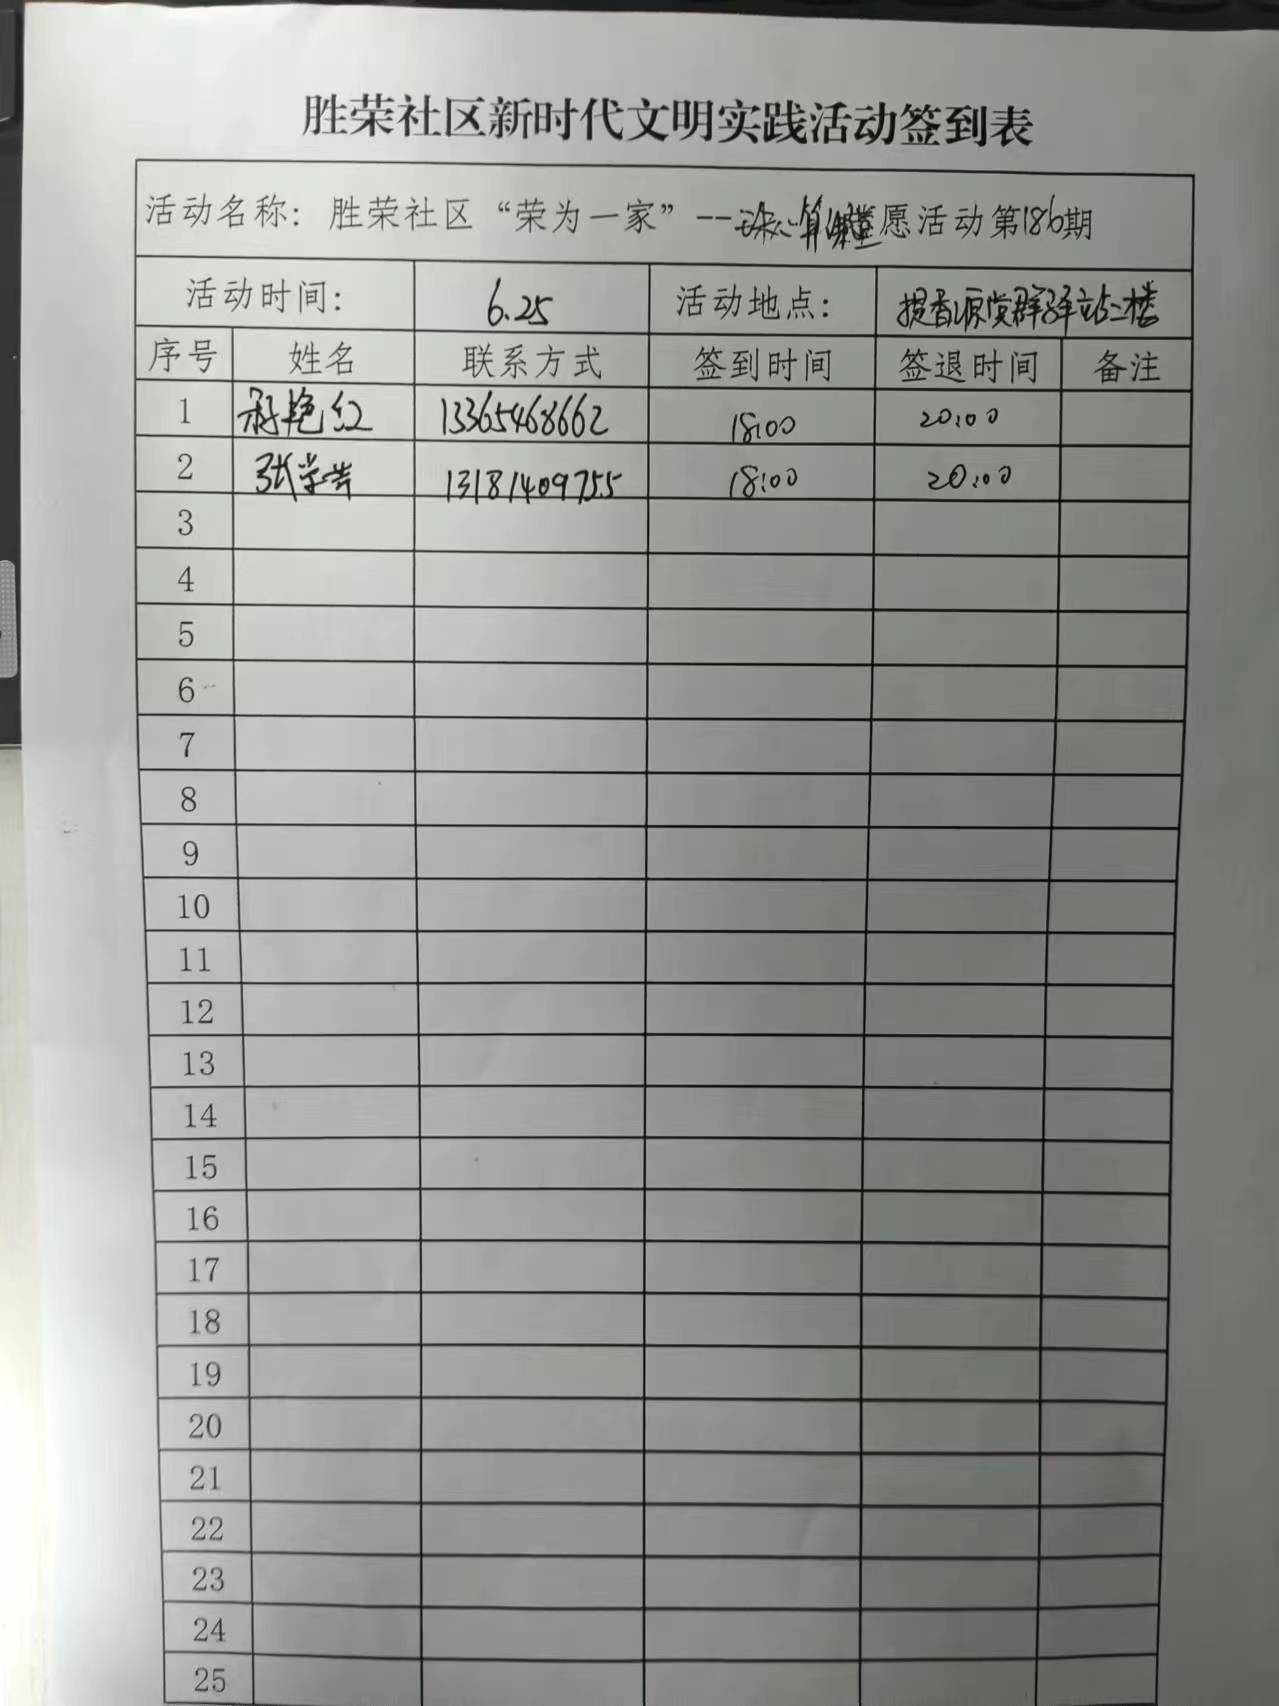 胜荣社区新时代文明实践活动签到表
活动名称：胜荣社区“荣为一家”--珠心算课堂愿活动第186期
活动时间： 6.25 活动地点： 提香源党群驿站二楼
序号 姓名 联系方式 签到时间 签退时间 备注
1 艳红 13365468662 18:00 20:00
2 张学芳 13181409755 18:00 20:00
3
4
5
6
7
8
9
10
11
12
13
14
15
16
17
18
19
20
21
22
23
24
25